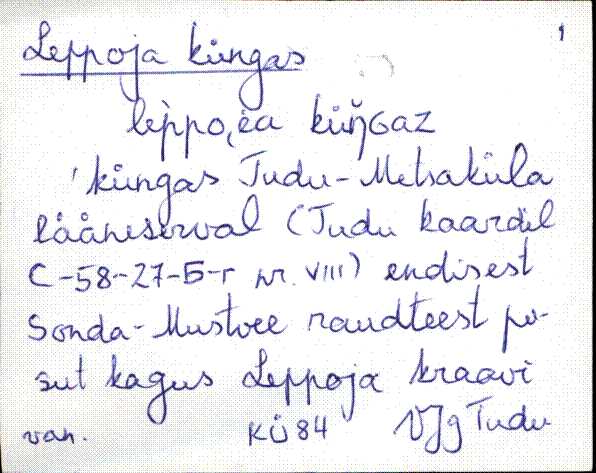 1
Leppoja küngas
lèppo,ėa küŋ̆Gaz
'küngas Tudu-Metsaküla
lääneserval (Tudu kaardil
C-58-27-Б-г nr. VIII) endisest
Sonda-Mustvee raudteest po-
sut kagus Leppoja kraavi
van. KÜ84 VJg Tudu